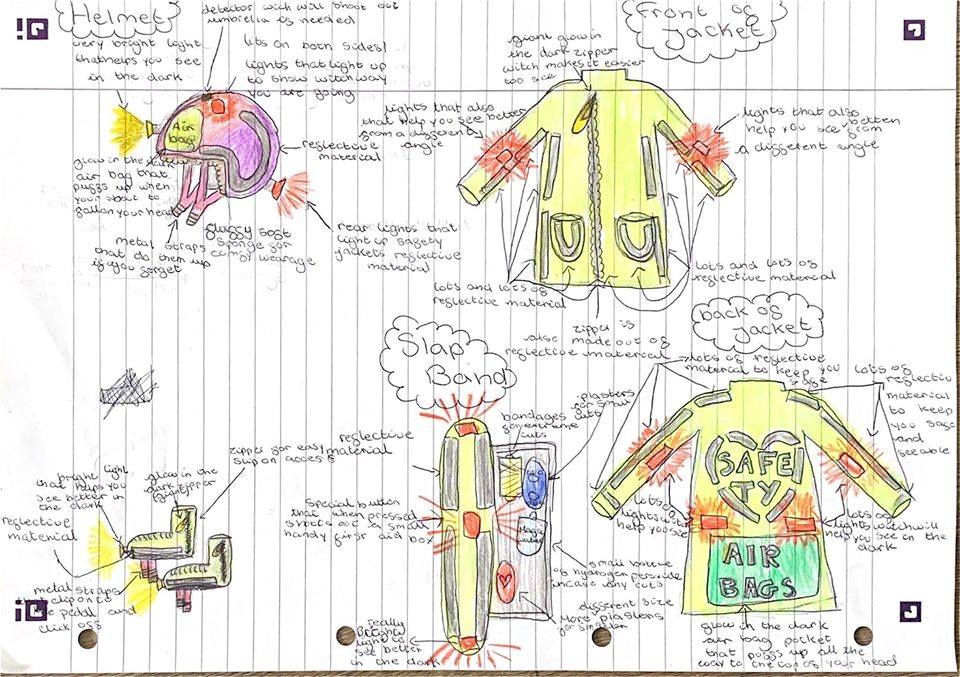 Helmet
detector wich will shoot out
umbrella is needed
very bright light
that helps you see
in the dark
lits on both sides!
lights that light up
to show witch way
you are going
Air
bag
reflective
material
glow in the dark
air bag that
puffs up when
your about to
fall on your head
metal straps
that do them up
if you forget
fluffy soft
sponge for
comfy wearage
rear lights that
light up safety
jackets reflective
material
Front of
jacket
giant glow in
the dark zipper
witch makes it easier
too see
lights that also
that help you see better
from a different
angle
lights that also
help you see from
better
a different angle
lots and lots of
reflective material
lots and lots of
reflective material
zipper is
also made out of
reflective material
Slap
Band
reflective
material
Special button
that when pressed
shoots out a small
handy first aid box
bandages
for extreme
cuts
plasters
for small
cuts
small bottle
of hydrogen peroxide
incase any cuts
different size
More plasters
really
bright
light to
see better
in the dark
back of
jacket
lots of reflective
material to keep you
safe
lots of
reflective
material
to keep
you safe
and
seeable
SAFE
TY
lots of
lights witch
help you see
lots of
lights witch will
help you see in the
dark
AIR
BAGS
glow in the dark
air bag pocket
that poffs up all the
way to the top of your head
zipper for easy
slip on access
bright light
that helps you
see better in
the dark
glow in the
dark zipper
reflective
material
metal straps
that clip on to
the pedal and
click off